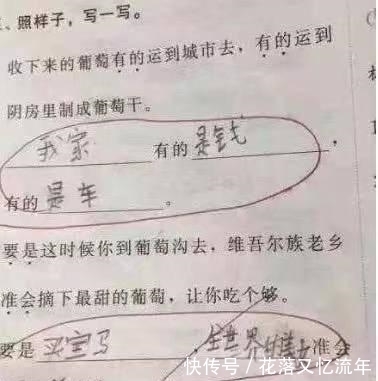 、照样子，写一写。
收下来的葡萄有的运到城市去，有的运到
阴房里制成葡萄干。
我家有的是钱，
有的是车。
要是这时候你到葡萄沟去，维吾尔族老乡
准会摘下最甜的葡萄，让你吃个够。
要是买宝马，全世界准会
快传号/花落又忆流年